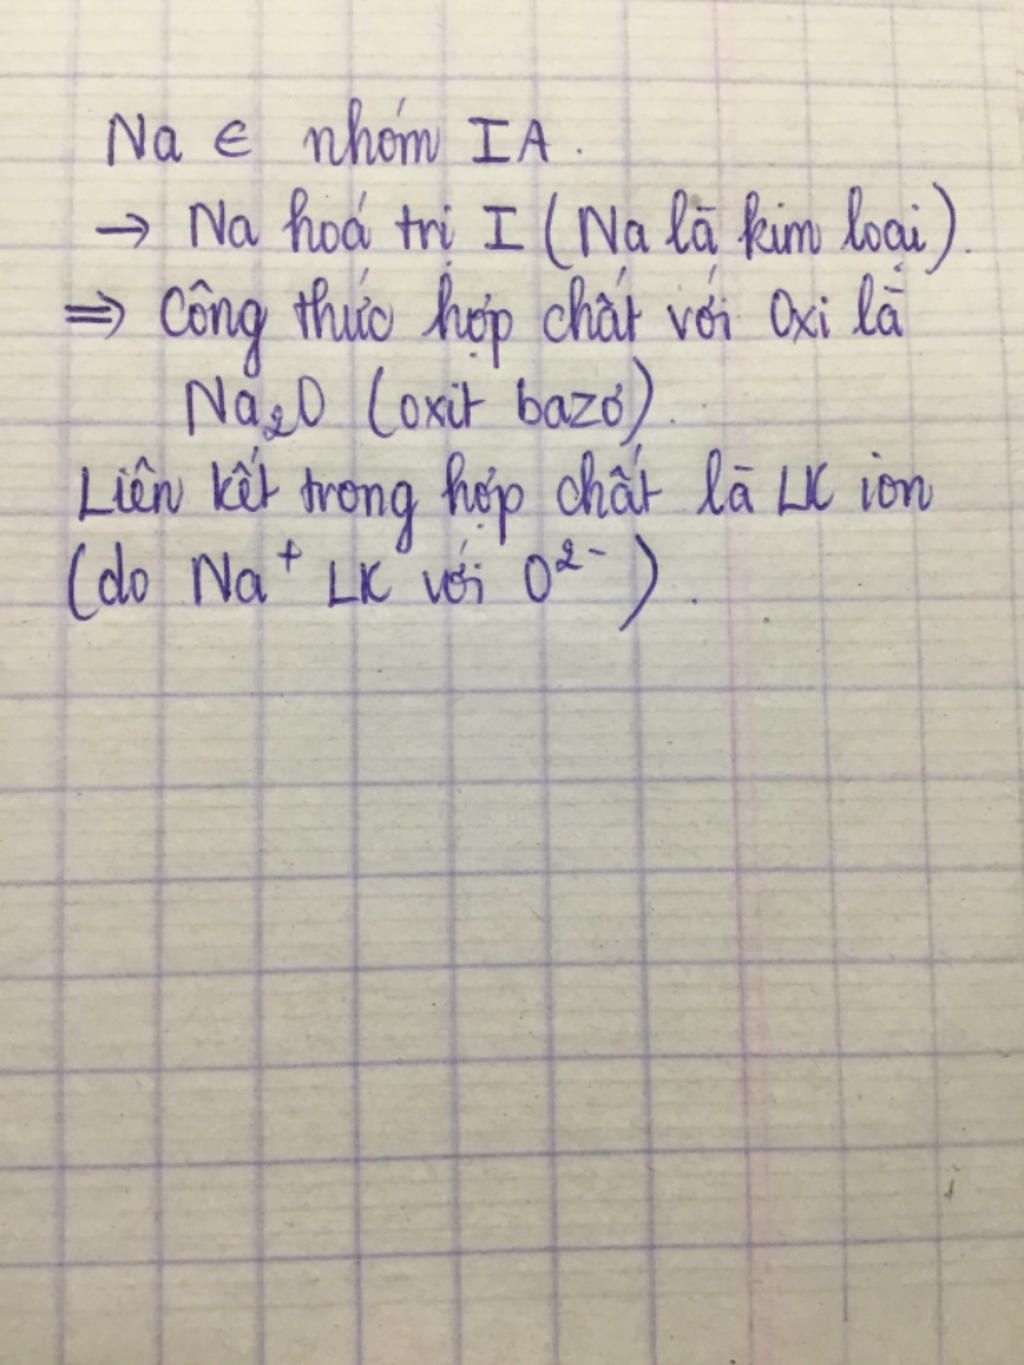 Na ∈ nhóm IA.
→ Na hoá trị I (Na là kim loại).
⇒ Công thức hợp chất với Oxi là
Na₂O (oxit bazơ).
Liên kết trong hợp chất là LK ion
(do Na⁺ LK với O²⁻).